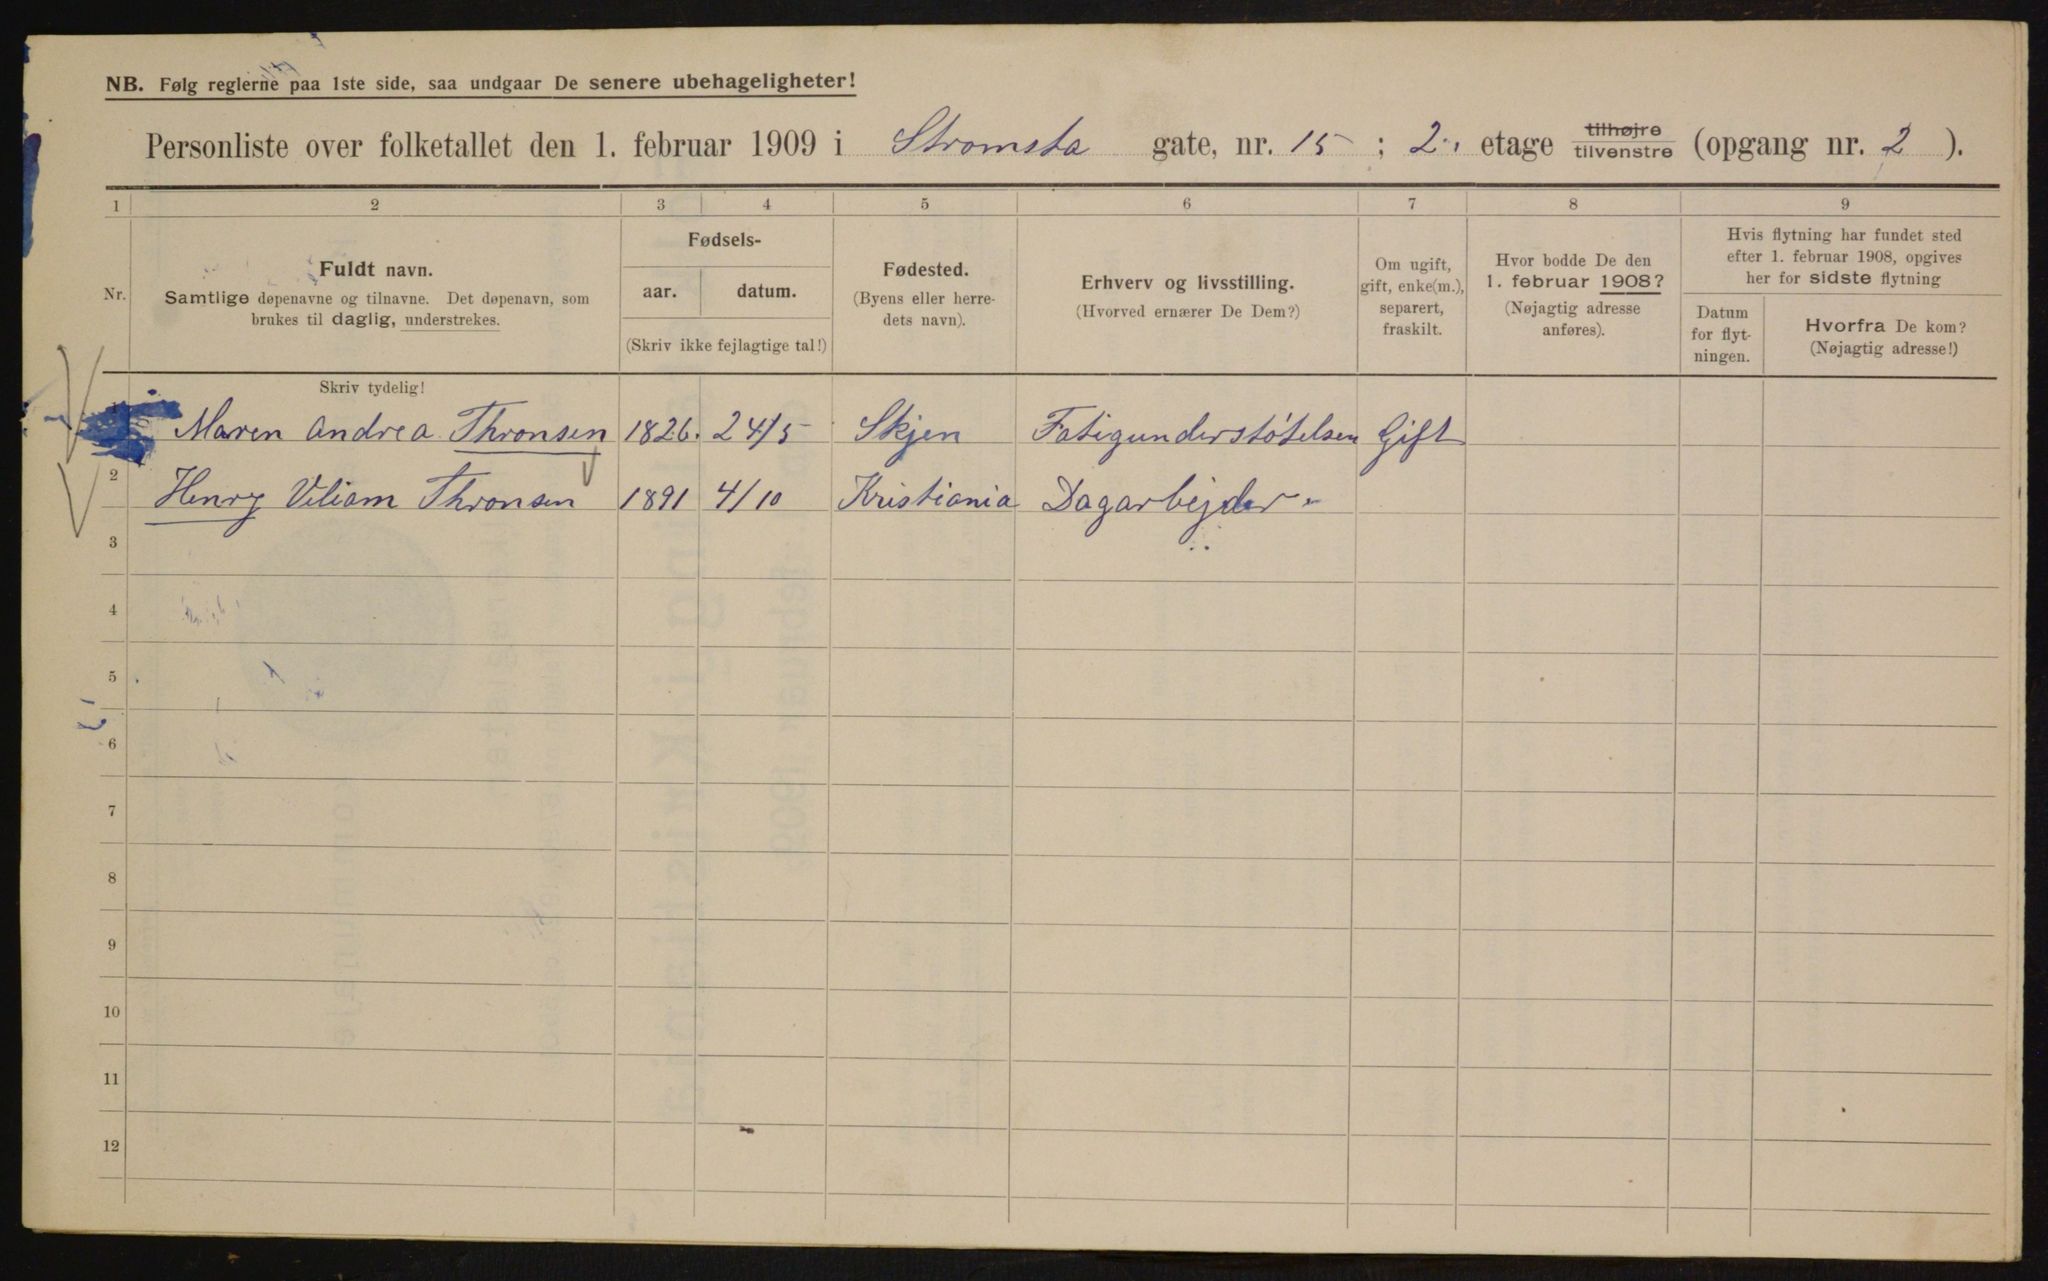 NB. Følg reglerne paa 1ste side, saa undgaar De senere ubehageligheter!
Personliste over folketallet den 1. februar 1909 i Stromsta gate, nr. 15 ; 2. etage tilhøjre tilvenstre (opgang nr. 2 ).
1 2 3 4 5 6 7 8 9
Nr.
Fuldt navn.
Samtlige døpenavne og tilnavne. Det døpenavn, som
brukes til daglig, understrekes.
Fødsels-
aar. datum.
(Skriv ikke fejlagtige tal!)
Fødested.
(Byens eller herre-
dets navn).
Erhverv og livsstilling.
(Hvorved ernærer De Dem?)
Om ugift,
gift, enke(m.),
separert,
fraskilt.
Hvor bodde De den
1. februar 1908?
(Nøjagtig adresse
anføres).
Hvis flytning har fundet sted
efter 1. februar 1908, opgives
her for sidste flytning
Datum
for flyt-
ningen.
Hvorfra De kom?
(Nøjagtig adresse!)
Skriv tydelig!
1 Maren Andrea Thronsen 1826. 24/5 Skjen Fatigunderstøtelsen Gift
2 Henry Viliam Thronsen 1891 4/10 Kristiania Dagarbejder
3
4
5
6
7
8
9
10
11
12